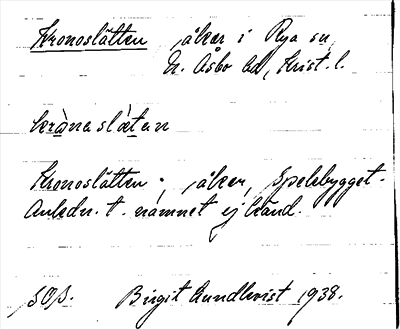 Kronoslätten åker i Rya sn,
N. Åsbo hd, Krist. l.
krònaslǽtan
Kronoslätten ; åker, Spelebygget.
Anledn. t. namnet ej känd.
SOB. Birgit Lundkvist 1938.